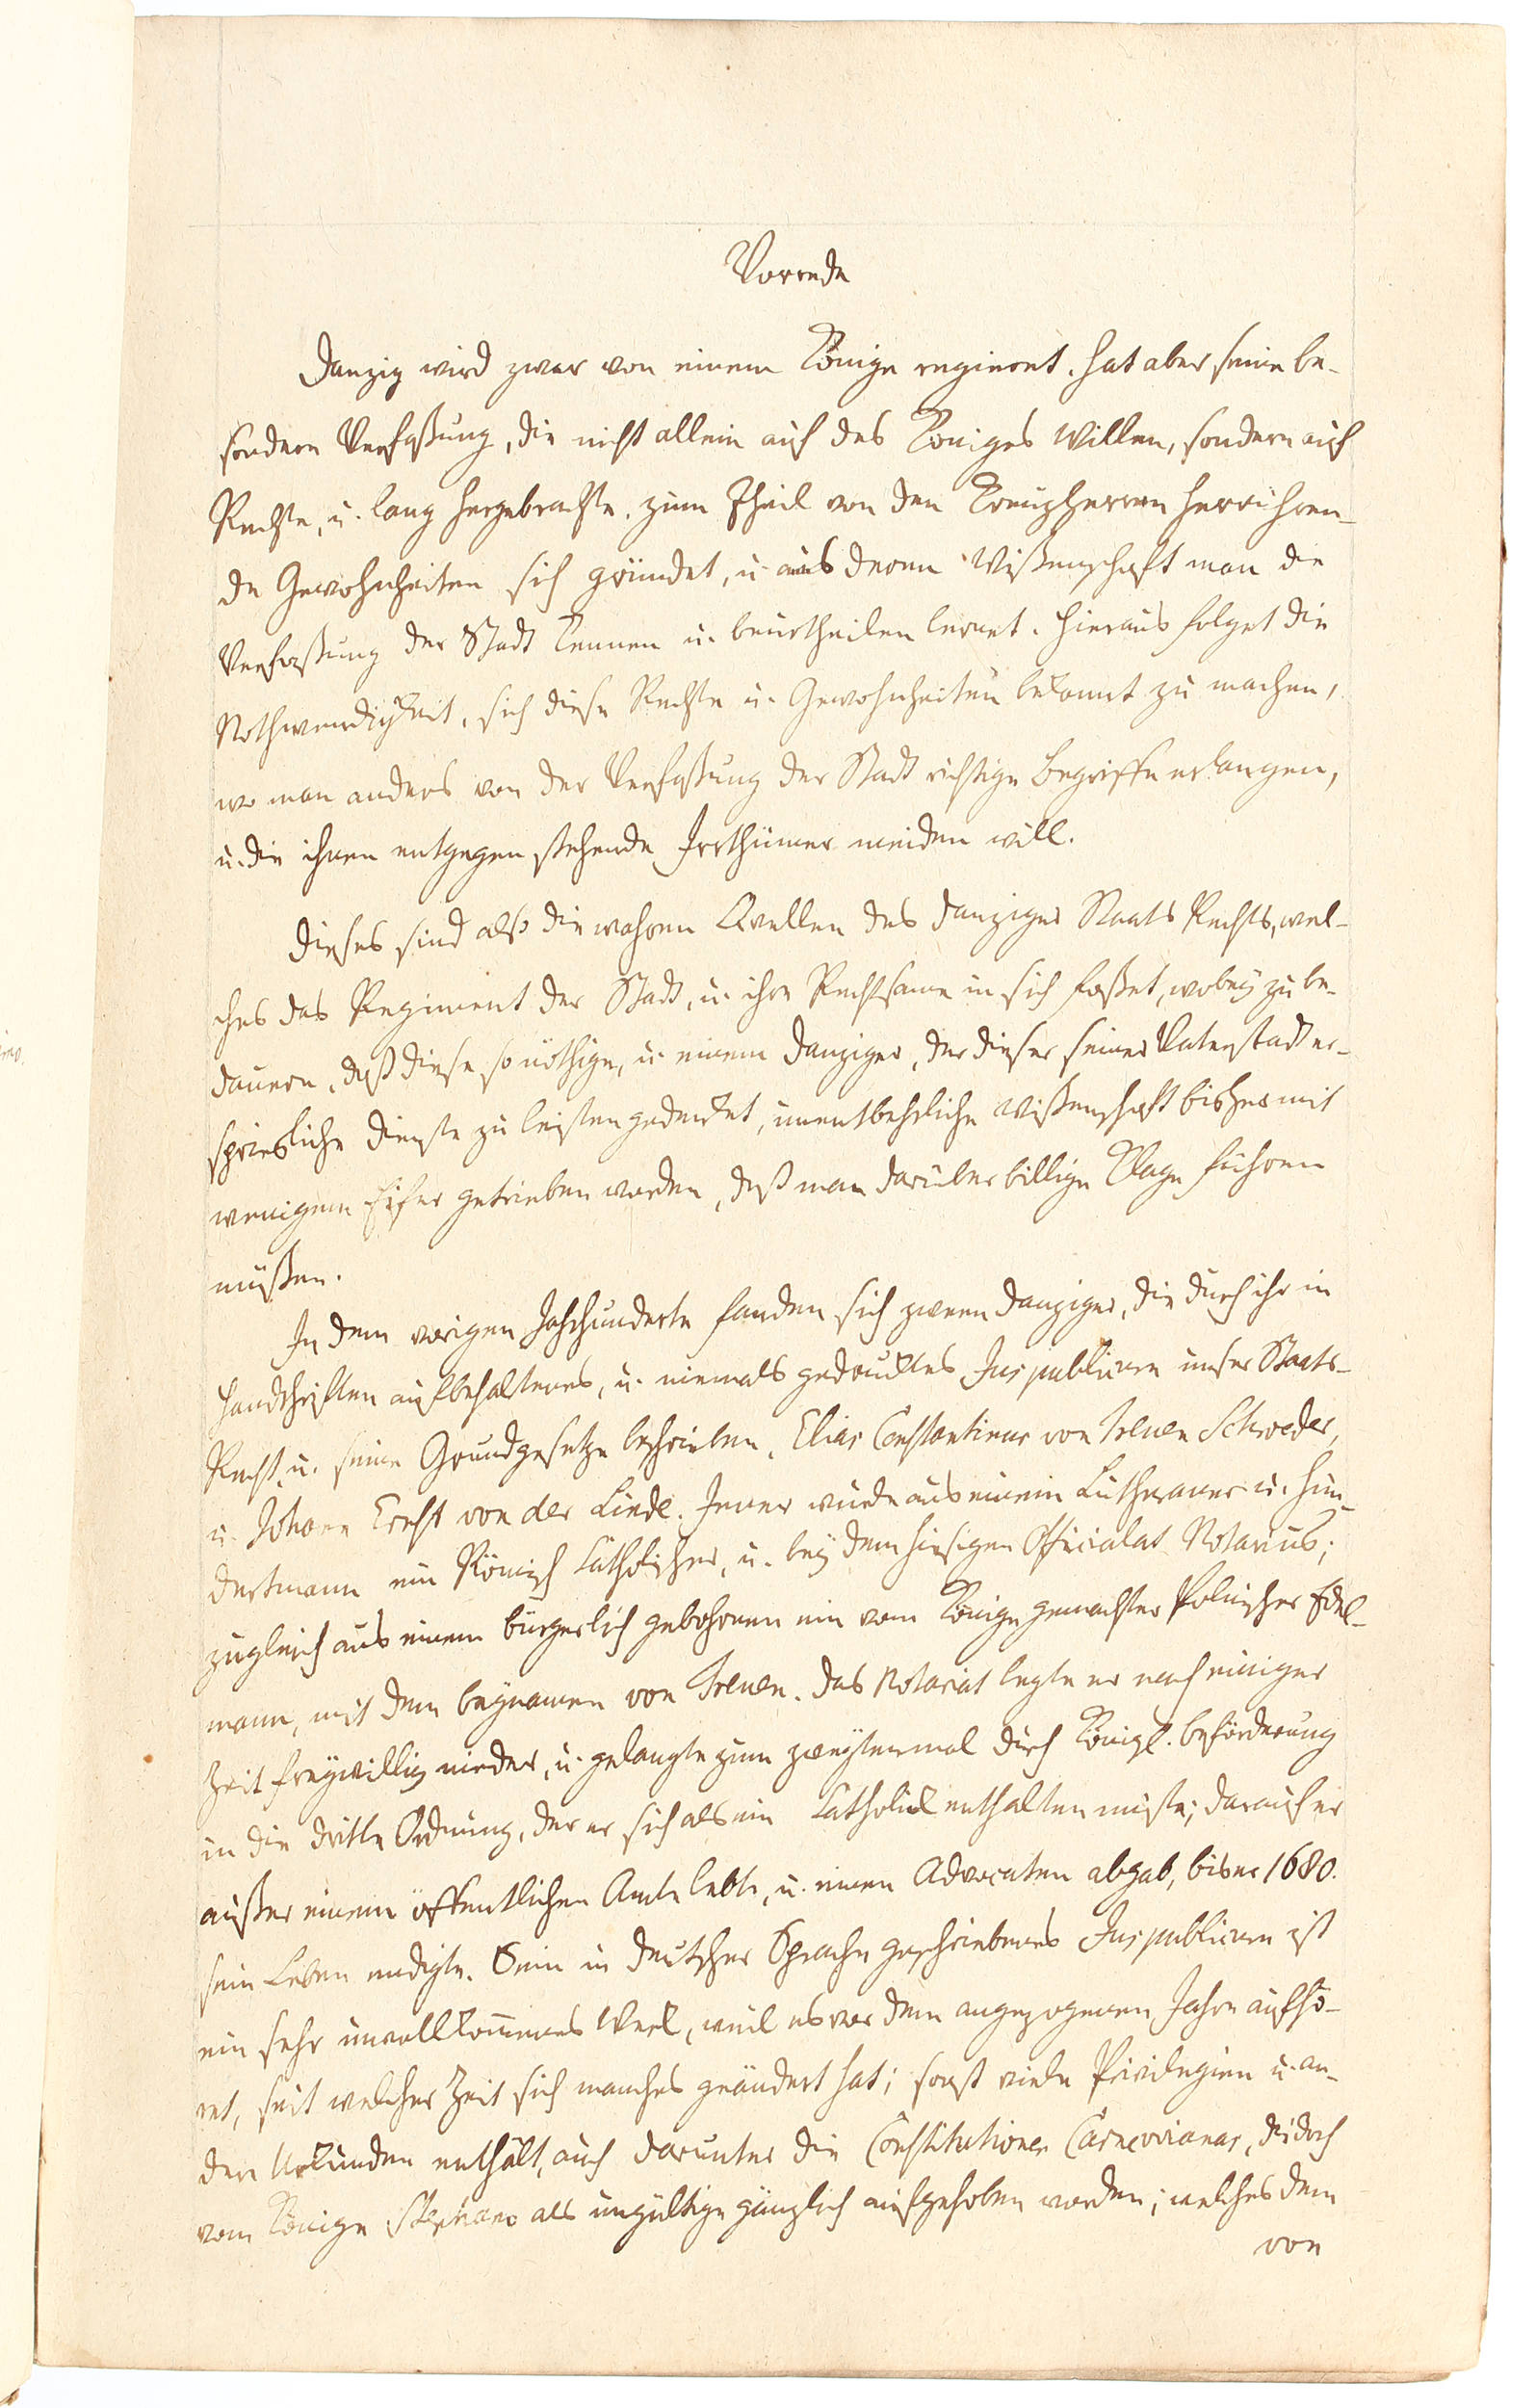 Vorrede
Danzig wird zwar von einem Könige regieret, hat aber seine be-
sondere Verfaßung, die nicht allein auf des Königes Willen, sondern auf
Rechte, u. lang hergebrachte, zum Theil von den Creuzherren herrühren-
de Gewohnheiten sich gründet, u. aus deren Wißenschaft man die
Verfaßung der Stadt kennen u. beurtheilen lernet. Hieraus folget die
Nothwendigkeit, sich diese Rechte u. Gewohnheiten bekannt zu machen,
wo man anders von der Verfaßung der Stadt richtige Begriffe erlangen,
u. die ihnen entgegen stehende Irrthümer meiden will.
Dieses sind also die wahren Quellen des Danziger Staats Rechts, wel-
ches das Regiment der Stadt, u. ihre Rechtsame in sich faßet, wobey zu be-
dauern, daß diese so nöthige, u. einem Danziger, der dieser seiner Vaterstadt er-
sprießliche Dienste zu leisten gedenket, unentbehrliche Wißenschaft bisher mit
wenigem Eifer getrieben worden, daß man darüber billige Klage führen
müßen.
In dem vorigen Jahrhunderte fanden sich zween Danziger, die durch ihr in
Handschriften aufbehaltenes, u. niemals gedrucktes Jus publicum unser Staats-
Recht u. seine Grundgesetze beschrieben, Elias Constantinus von Treuen Schroeder,
u. Johann Ernst von der Linde. Jener wurde aus einem Lutheraner u. Hun-
dertmann ein Römisch Catholischer, u. bey dem hiesigen Officialat Notarius;
zugleich aus einem bürgerlich gebohrnen ein vom Könige gemachter Polnischer Edel-
mann, mit dem beynamen von Treuen. Das Notariat legte er nach einiger
Zeit freywillig nieder, u. gelangte zum zweytenmal durch Königl. beförderung
in die dritte Ordnung, der er sich als ein Catholick enthalten muste; darauf er
außer einem öffentlichen Amte lebte, u. einen Advocaten abgab, bis er 1680.
sein Leben endigte. Sein in deutscher Sprache geschriebenes Jus publicum ist
ein sehr unvollkommenes Werk, weil es vor dem angezogenen Jahre aufhö-
ret, seit welcher Zeit sich manches geändert hat; sonst viele Privilegien u. an-
dere Urkunden enthält, auch darunter die Constitutiones Carncovianas, die doch
vom Könige Stephano als ungültige gänzlich aufgehoben worden; welches dem
von